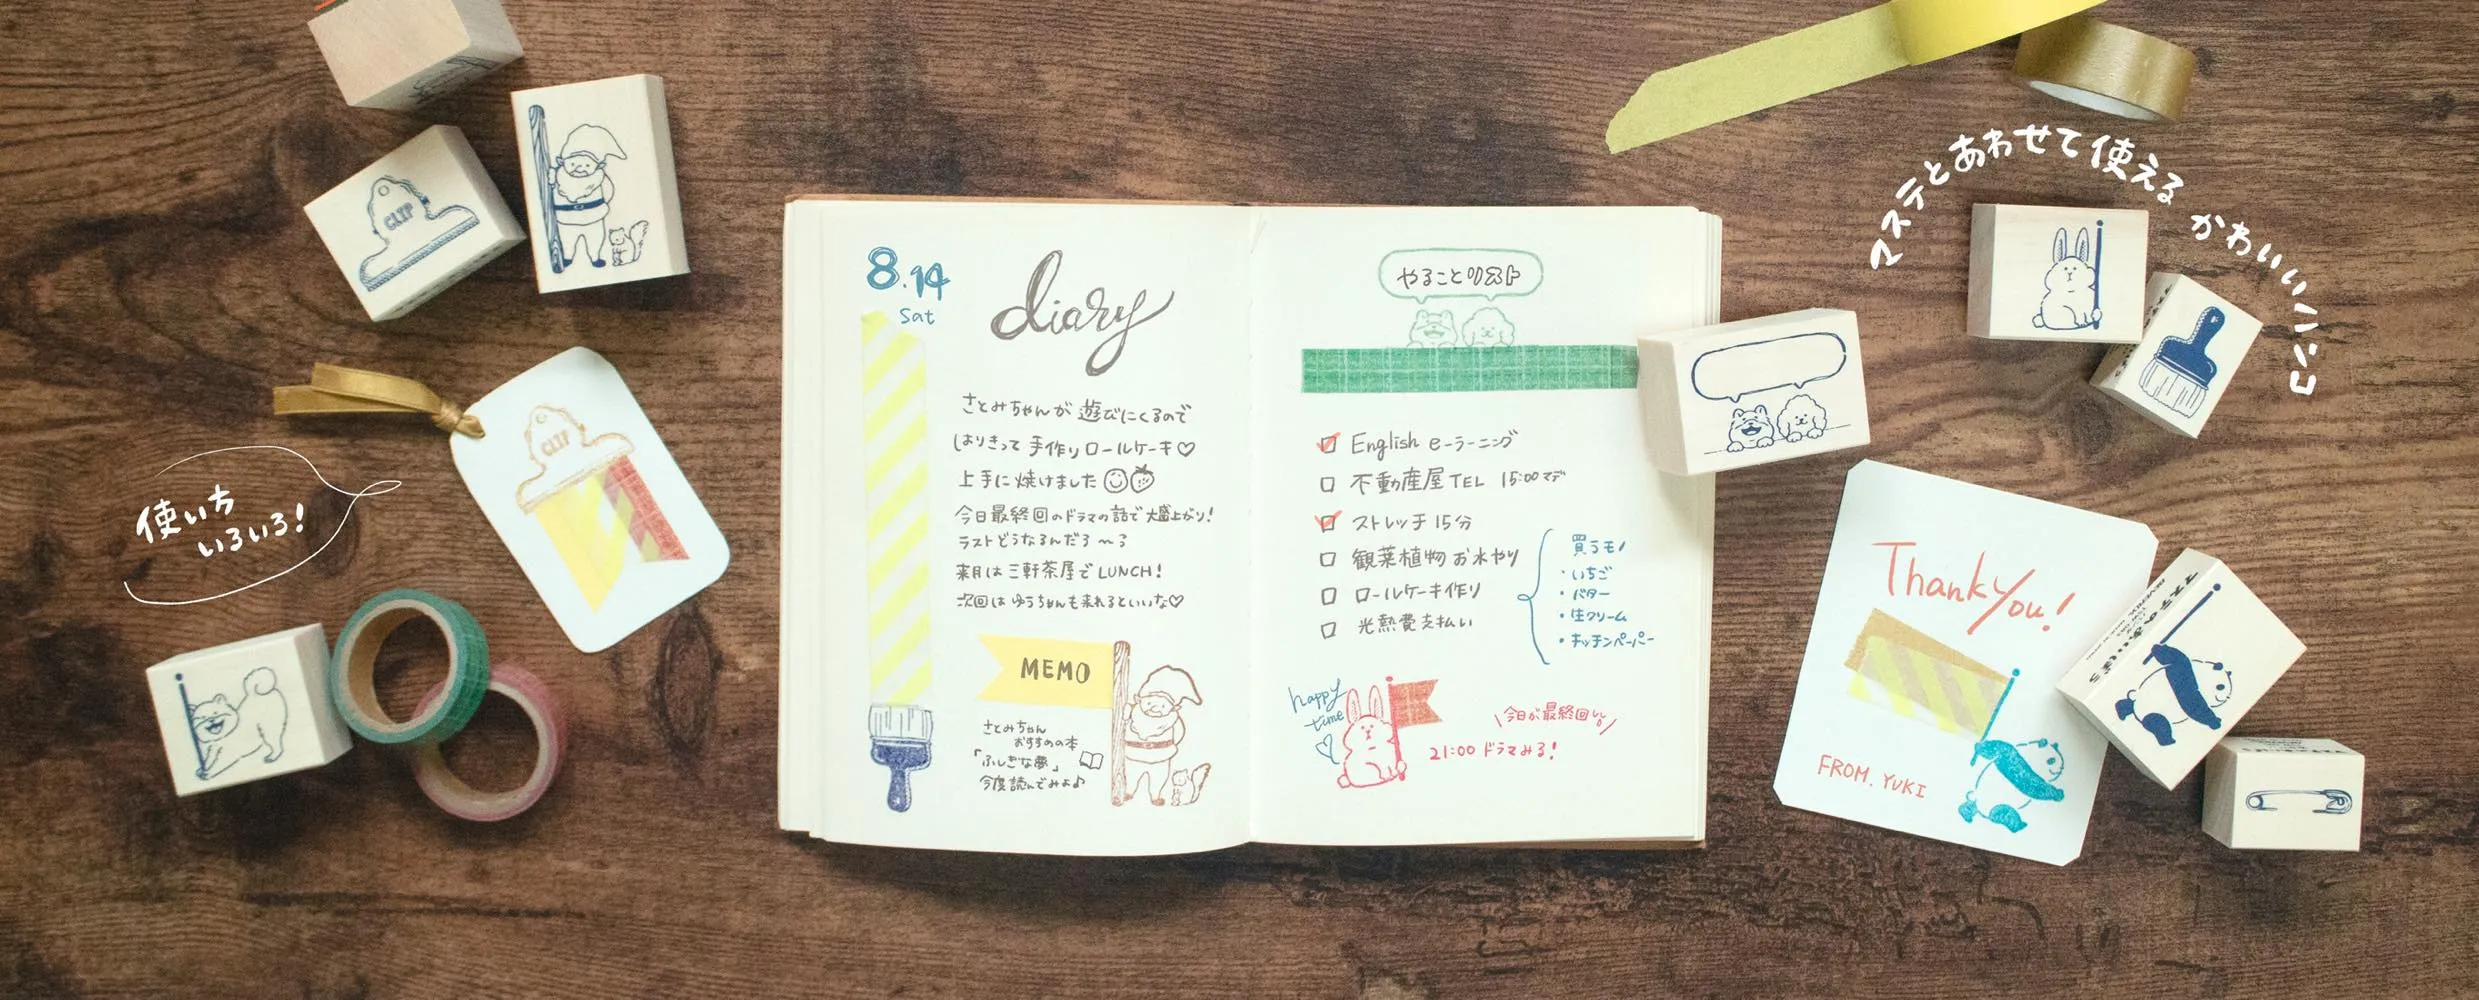 CLIP
CLIP
使い方
いろいろ!
8.14
Sat
diary
さとみちゃんが遊びにくるので
はりきって手作りロールケーキ♡
上手に焼けました
今日最終回のドラマの話で大盛上がり!
ラストどうなるんだろ〜る
来月は三軒茶屋でLUNCH!
次回はゆうちゃんも来れるといいな♡
MEMO
さとみちゃん
おすすめの本
「ふしぎな夢」
今度読んでみよ♪
やることリスト
English e-ラーニング
不動産屋TEL 15:00マデ
ストレッチ 15分
観葉植物お水やり
ロールケーキ作り
光熱費支払い
買うモノ
・いちご
・バター
・生クリーム
・キッチンペーパー
happy
time
今日が最終回
21:00 ドラマみる!
マステとあわせて使える かわいいハンコ
Thank you!
FROM. YUKI
マステのあいぼう